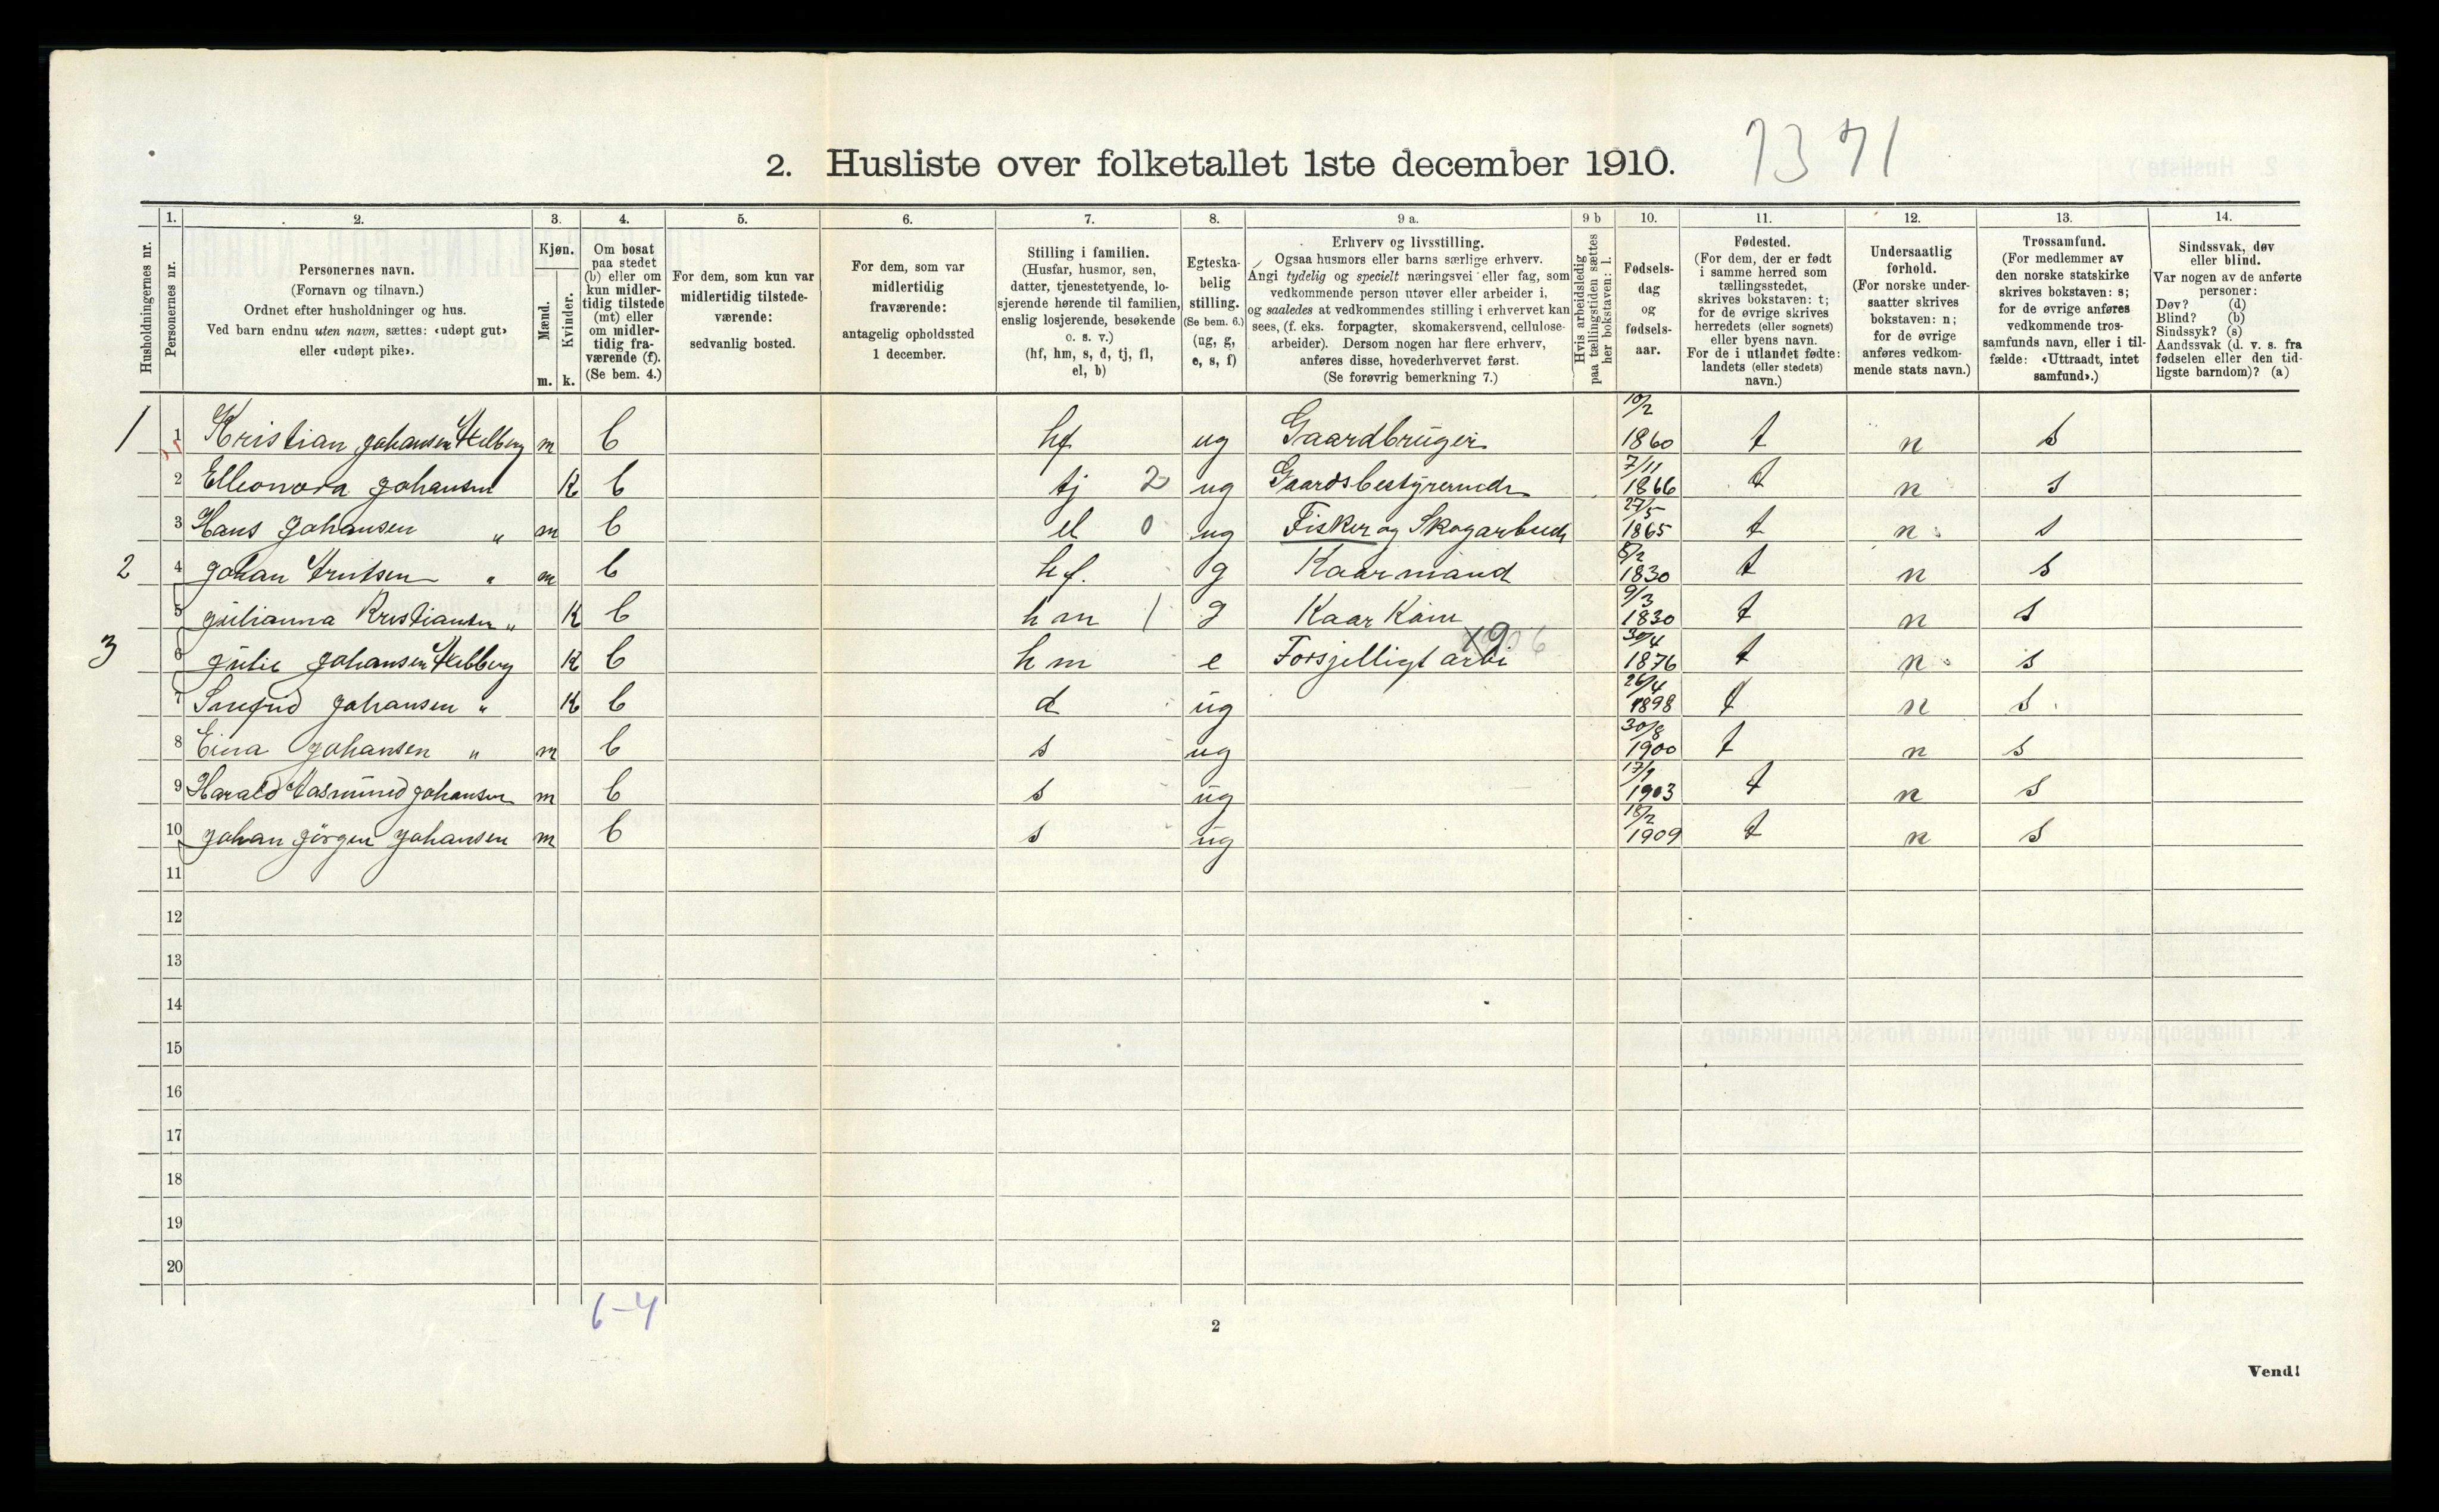 2. Husliste over folketallet 1ste december 1910. 1371
Husholdningernes nr.
1. Personernes nr.
2. Personernes navn.
(Fornavn og tilnavn.)
Ordnet efter husholdninger og hus.
Ved barn endnu uten navn, sættes: «udøpt gut»
eller «udøpt pike».
3. Kjøn.
Mænd. m.
Kvinder. k.
4. Om bosat
paa stedet
(b) eller om
kun midler-
tidig tilstede
(mt) eller
om midler-
tidig fra-
værende (f).
(Se bem. 4.)
5. For dem, som kun var
midlertidig tilstede-
værende:
sedvanlig bosted.
6. For dem, som var
midlertidig
fraværende:
antagelig opholdssted
1 december.
7. Stilling i familien.
(Husfar, husmor, søn,
datter, tjenestetyende, lo-
sjerende hørende til familien,
enslig losjerende, besøkende
o. s. v.)
(hf, hm, s, d, tj, fl,
el, b)
8. Egteska-
belig
stilling.
(Se bem. 6.)
(ug, g,
e, s, f)
9 a. Erhverv og livsstilling.
Ogsaa husmors eller barns særlige erhverv.
Angi tydelig og specielt næringsvei eller fag, som
vedkommende person utøver eller arbeider i,
og saaledes at vedkommendes stilling i erhvervet kan
sees, (f. eks. forpagter, skomakersvend, cellulose-
arbeider). Dersom nogen har flere erhverv,
anføres disse, hovederhvervet først.
(Se forøvrig bemerkning 7.)
9 b Hvis arbeidsledig
paa tællingstiden sættes
her bokstaven: l.
10. Fødsels-
dag
og
fødsels-
aar.
11. Fødested.
(For dem, der er født
i samme herred som
tællingsstedet,
skrives bokstaven: t;
for de øvrige skrives
herredets (eller sognets)
eller byens navn.
For de i utlandet fødte:
landets (eller stedets)
navn.)
12. Undersaatlig
forhold.
(For norske under-
saatter skrives
bokstaven: n;
for de øvrige
anføres vedkom-
mende stats navn.)
13. Trossamfund.
(For medlemmer av
den norske statskirke
skrives bokstaven: s;
for de øvrige anføres
vedkommende tros-
samfunds navn, eller i til-
fælde: «Uttraadt, intet
samfund».)
14. Sindssvak, døv
eller blind.
Var nogen av de anførte
personer:
Døv? (d)
Blind? (b)
Sindssyk? (s)
Aandssvak (d. v. s. fra
fødselen eller den tid-
ligste barndom)? (a)
1 1 Kristian Johansen m b hf ug Gaardbruger 10/2 1860 t n s
2 Elleonora Johansen K b tj 2 ug Gaardsbestyrerinde 7/11 1866 t n s
3 Hans Johansen " m b el 0 ug Fisker og Skogarbeid 27/5 1865 t n s
2 4 Johan " m b hf. g Kaarmand 8/2 1830 t n s
5 Julianna Kristiansen " K b hm 1 g Kaar Kone 9/3 1830 t n s
3 6 Julie Johansen K b hm e Forsjelligt arbi 30/4 1876 t n s
7 Johansen " K b d ug 26/4 1898 t n s
8 Einar Johansen " m b s ug 30/8 1900 t n s
9 Harald Johansen m b s ug 17/9 1903 t n s
10 Johan Jörgen Johansen m b s ug 18/2 1909 t n s
11
12
13
14
15
16
17
18
19
20
6-4
2
Vend!